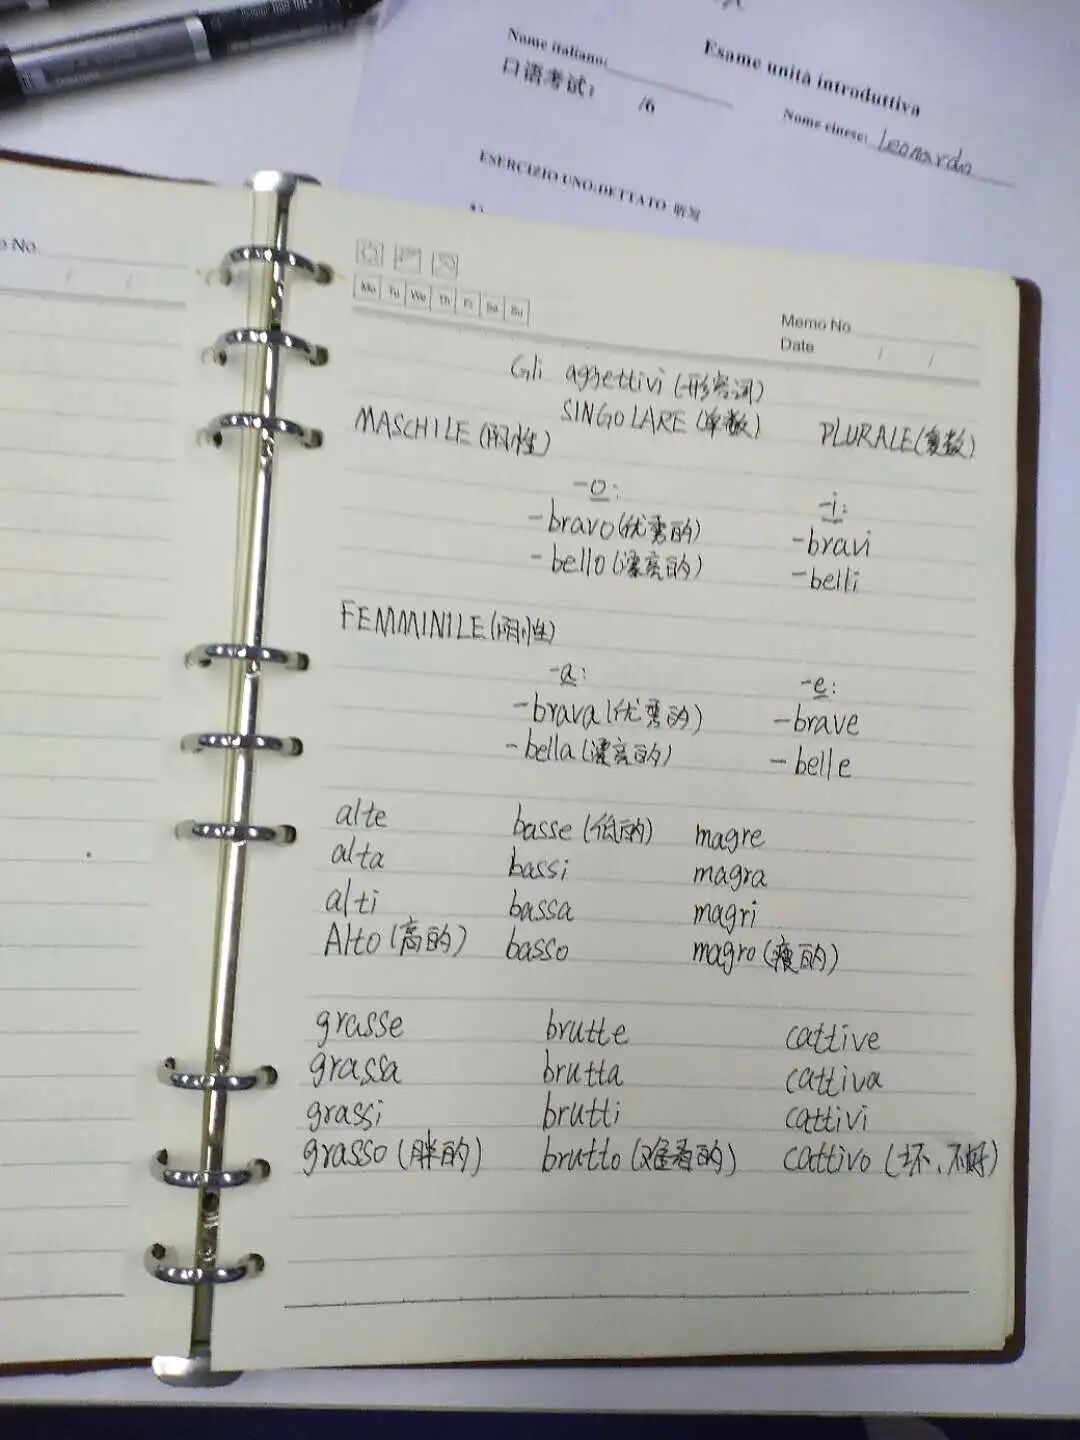 Esame unità introduttiva
Nome italiano:
Nome cinese: Leonardo
口语考试: /6
ESERCIZIO UNO:DETTATO 听写
No.
Mo Tu We Th Fr Sa Su
Memo No.
Date / /
Gli aggettivi (形容词)
SINGOLARE (单数) PLURALE (复数)
MASCHILE (阳性)
-o: -i:
-bravo (优秀的) -bravi
-bello (漂亮的) -belli
FEMMINILE (阴性)
-a: -e:
-brava (优秀的) -brave
-bella (漂亮的) -belle
alte basse (低的) magre
alta bassi magra
alti bassa magri
Alto (高的) basso magro (瘦的)
grasse brutte cattive
grassa brutta cattiva
grassi brutti cattivi
grasso (胖的) brutto (难看的) cattivo (坏、不好)